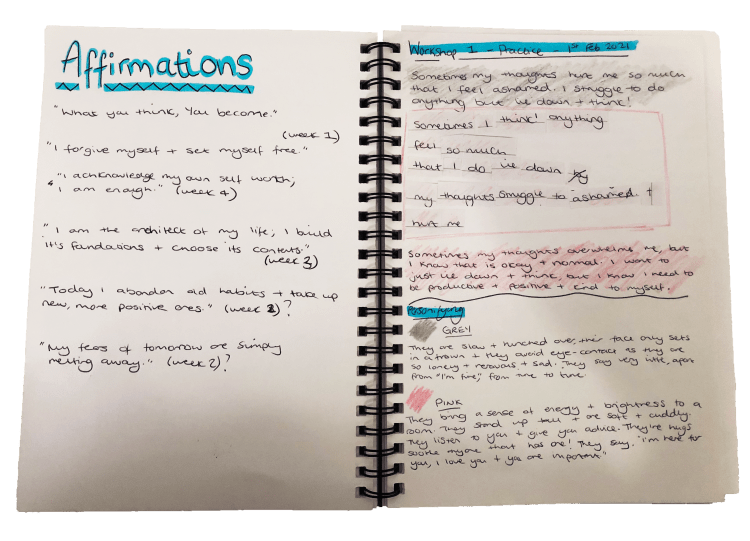 Affirmations
"What you think, You become."
(week 1)
"I forgive myself + set myself free."
"I acknowledge my own self worth;
I am enough." (week 4)
"I am the architect of my life; I build
it's foundations + choose its contents."
(week 3)
"Today I abandon old habits + take up
new, more positive ones." (week 2)?
"My fears of tomorrow are simply
melting away." (week 2)?
Workshop 1 - Practice - 1st Feb 2021
Sometimes my thoughts hurt me so much
that I feel ashamed. I struggle to do
anything but lie down + think!
Sometimes I think! anything
feel so much
that I do lie down
my thoughts struggle to ashamed. +
hurt me
Sometimes my thoughts overwhelm me, but
I know that is okay + normal. I want to
just lie down + think, but I know I need to
be productive + positive + kind to myself.
Personifying
GREY
They are slow + hunched over, their face only sets
in a frown + they avoid eye-contact as they are
so lonely + nervous + sad. They say very little, apart
from "I'm fine," from time to time.
PINK
They bring a sense of energy + brightness to a
room. They stand up tall + are soft + cuddly.
They listen to you + give you advice. Their hugs
soothe anyone that has one! They say, "I'm here for
you, I love you + you are important"